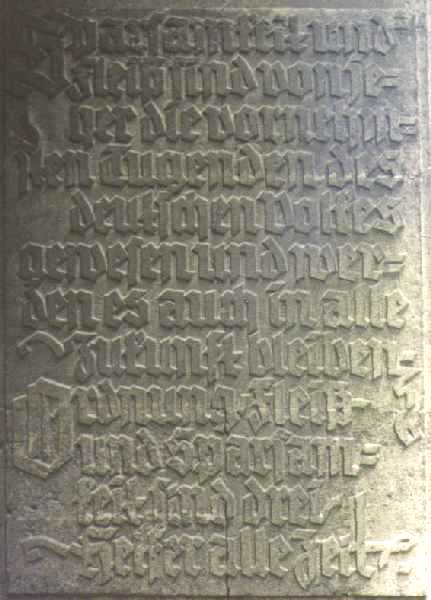 Sparsamkeit und
Fleiß sind von je-
her die vornehm-
sten Tugenden des
deutschen Volkes
gewesen und wer-
den es auch in alle
Zukunft bleiben
Ordnung Fleiß
und Sparsam-
keit sind drei
Helfer alle Zeit